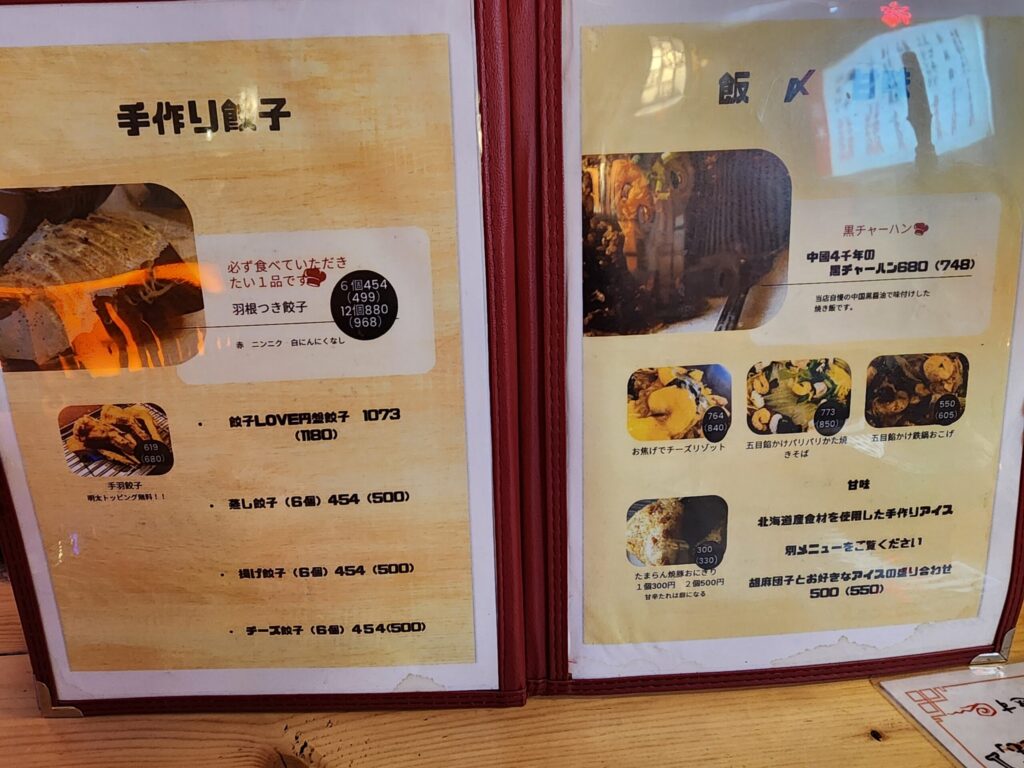 手作り餃子
必ず食べていただき
たい1品です
羽根つき餃子
6個454
(499)
12個880
(968)
赤 ニンニク 白にんにくなし
619
(680)
手羽餃子
明太トッピング無料！！
・ 餃子LOVE円盤餃子 1073
(1180)
・ 蒸し餃子（6個）454（500）
・ 揚げ餃子（6個）454（500）
・ チーズ餃子（6個）454(500)
飯 〆 甘味
黒チャーハン
中國4千年の
黒チャーハン680（748）
当店自慢の中国黒醤油で味付けした
焼き飯です。
764
(840)
お焦げでチーズリゾット
773
(850)
五目餡かけパリパリかた焼
きそば
550
(605)
五目餡かけ鉄鍋おこげ
300
(330)
たまらん焼豚おにぎり
1個300円 2個500円
甘辛たれは癖になる
甘味
北海道産食材を使用した手作りアイス
別メニューをご覧ください
胡麻団子とお好きなアイスの盛り合わせ
500（550）